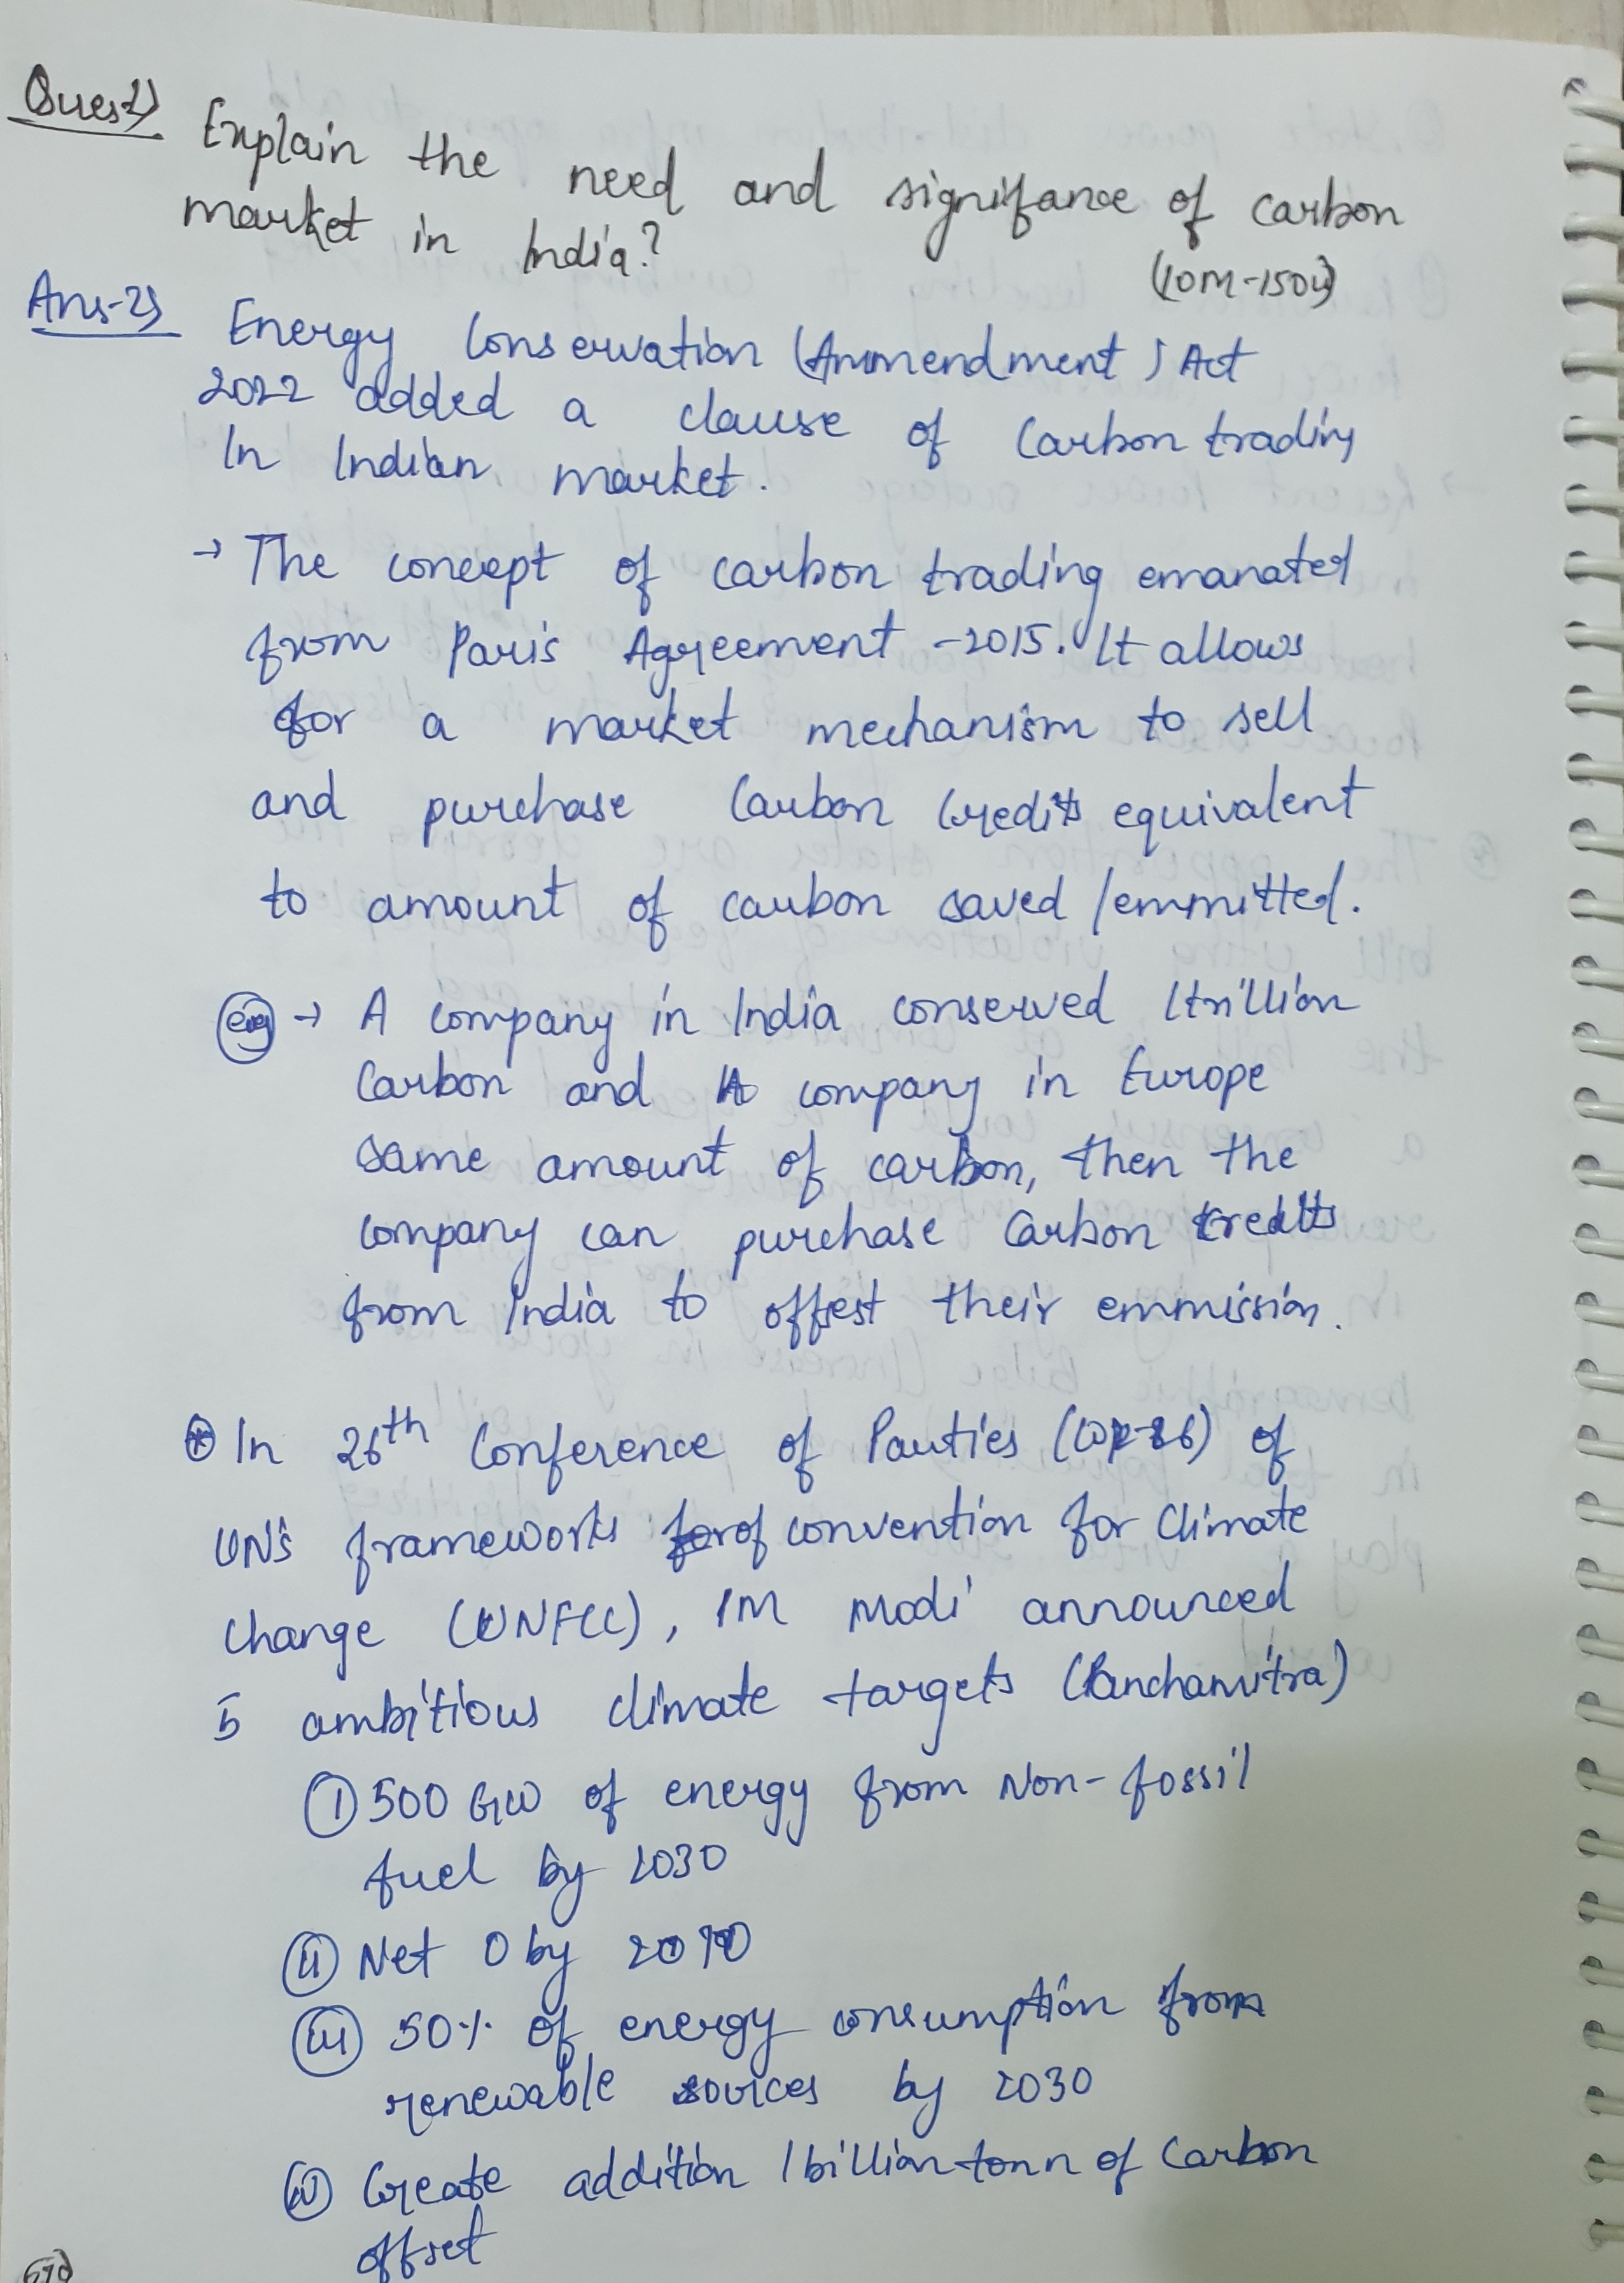 Ques2) Explain the need and signifance of carbon
market in India?
(10M-150w)
Ans-2) Energy Conservation (Ammendment) Act
2022 added a clause of Carbon trading
In Indian market.
→ The concept of carbon trading emanated
from Paris Agreement -2015. It allows
for a market mechanism to sell
and purchase Carbon Credits equivalent
to amount of carbon saved /emmitted.
eg → A company in India conserved 1trillion
Carbon and A company in Europe
same amount of carbon, then the
company can purchase Carbon Credits
from India to offset their emmission.
* In 26th Conference of Parties (COP-26) of
UN's frameworks of convention for Climate
change (UNFCC), PM Modi announced
5 ambitious climate targets (Panchamitra)
(i) 500 GW of energy from Non-fossil
fuel by 2030
(ii) Net 0 by 2070
(iii) 50% of energy consumption from
renewable sources by 2030
(iv) Create addition 1 billion tonn of Carbon
offset